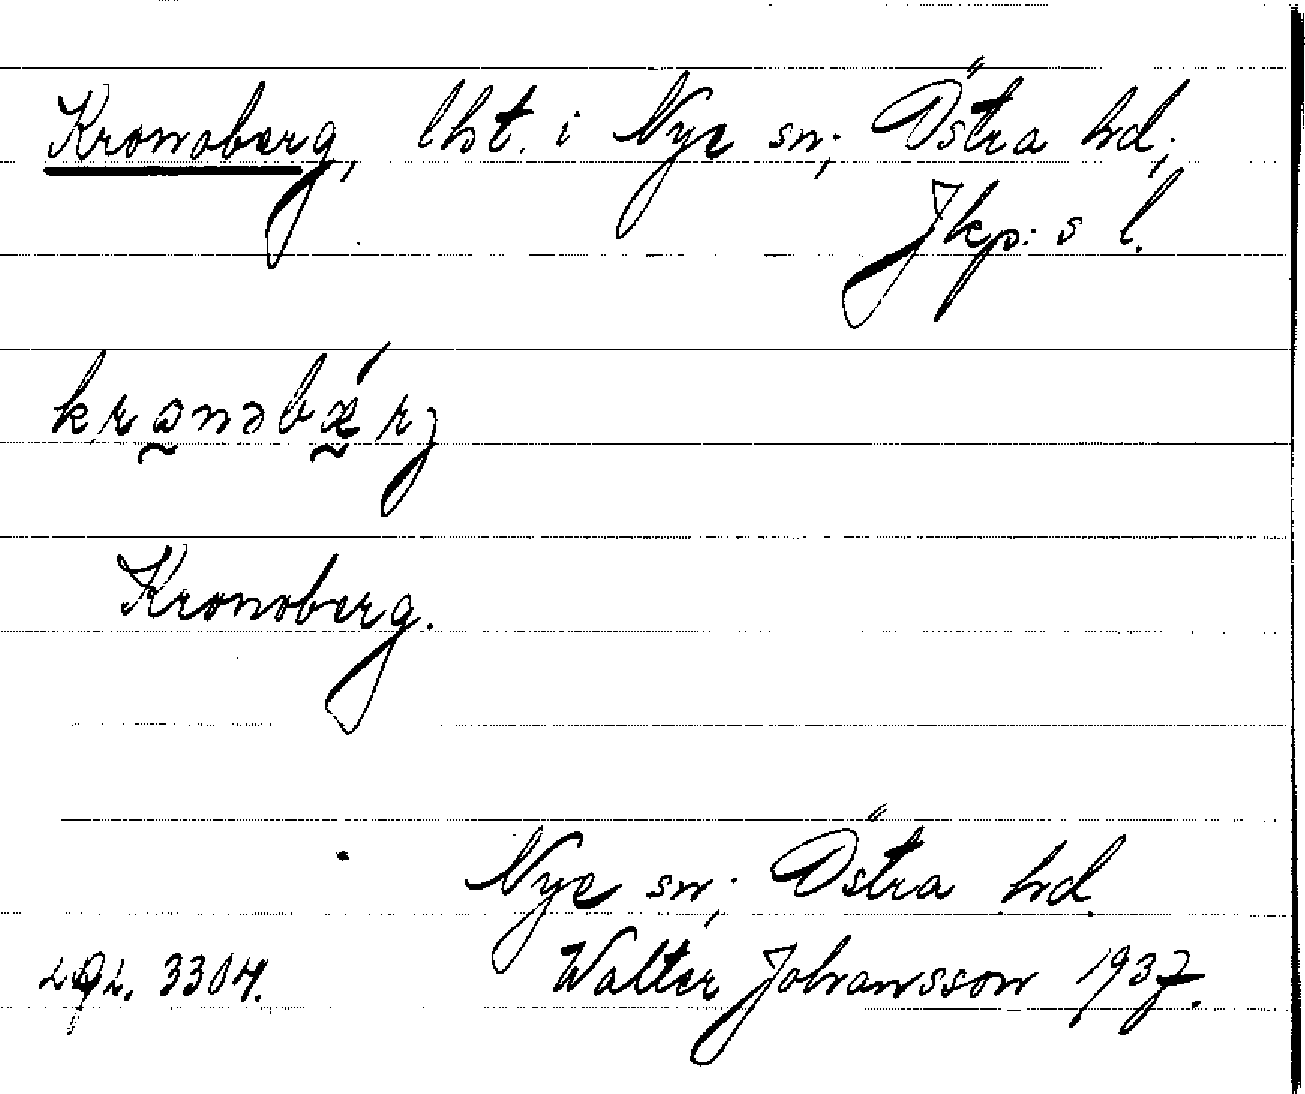 Kronoberg, lht. i Nye sn; Östra hd;
Jkp:s l.
Kronoberg.
Nye sn; Östra hd.
3304. Walter Johansson 1937.